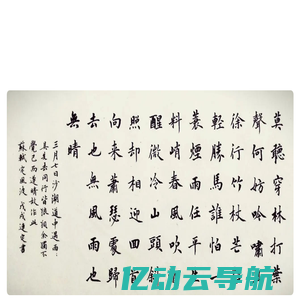 莫聽穿林打葉
聲何妨吟嘯
徐行竹杖芒
輕勝馬誰怕
蓑煙雨任平生
料峭春風吹
醒微冷山頭斜
照卻相迎回
向來蕭瑟處歸
去也無風雨也
無晴
三月七日沙湖道中遇雨
具先去同行皆狼狽余獨不
覺已而遂晴故作此
蘇軾定風波 戊戌 書